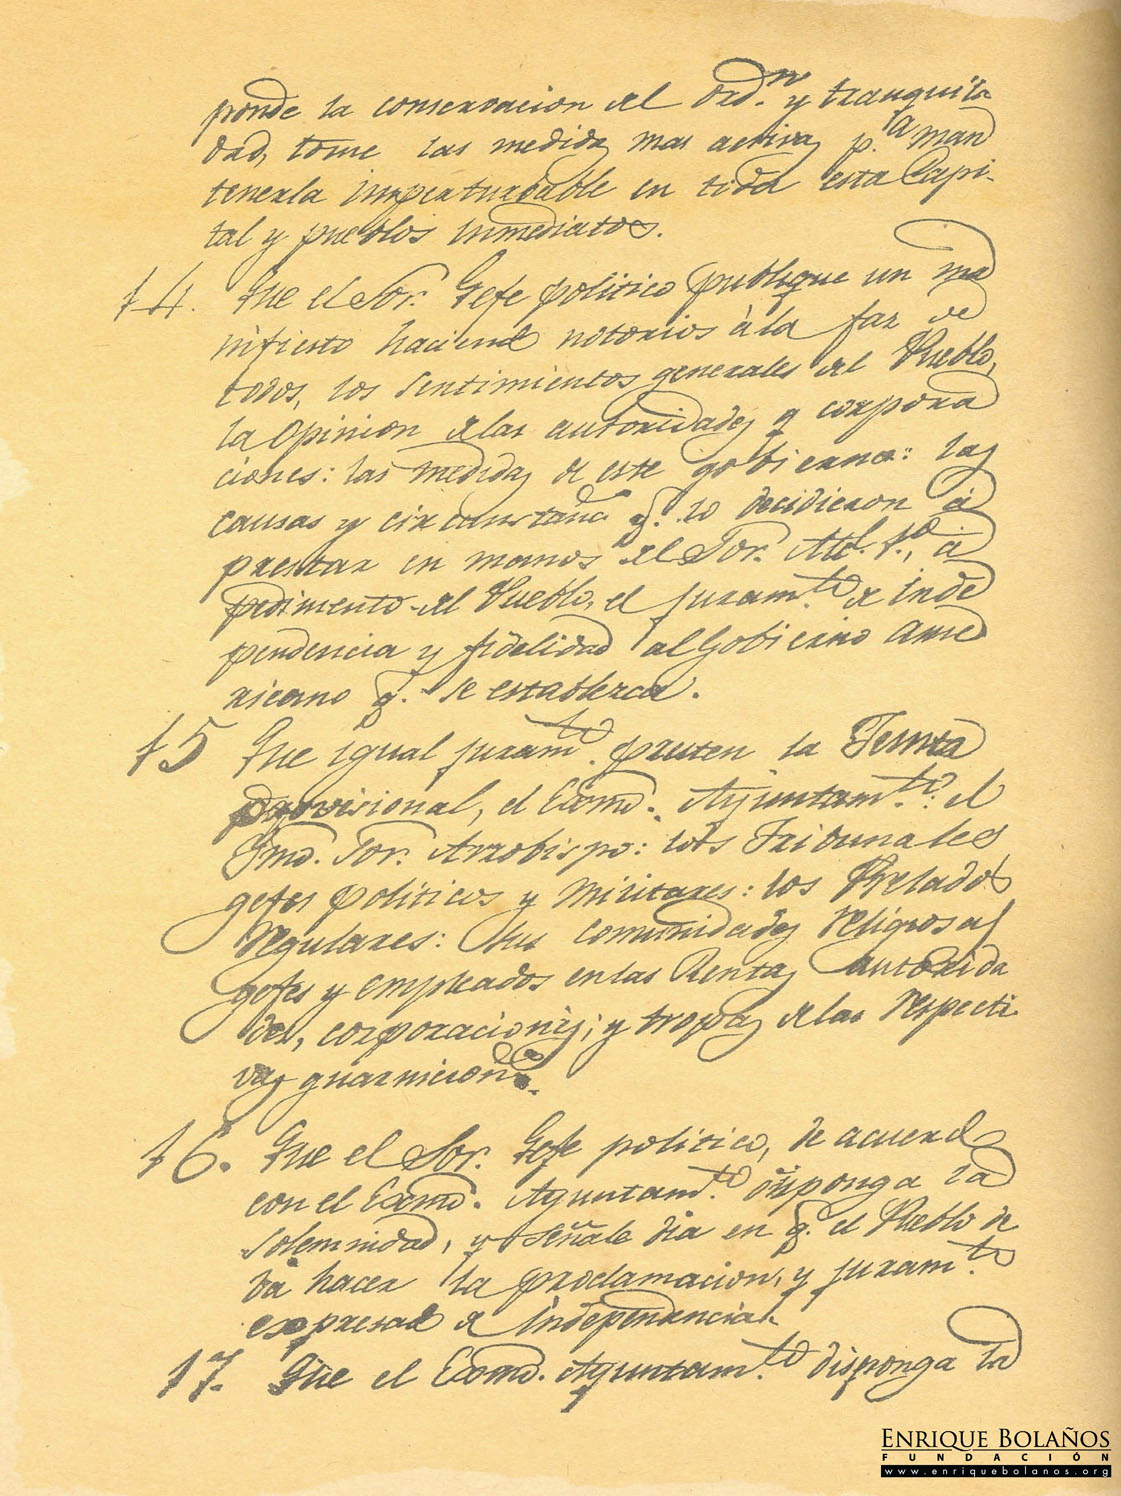 ponde la conservacion del Ordn. y tranquili
dad, tome las medidas mas activas p.a man
tenerla imperturbable en toda esta Capi-
tal y pueblos inmediatos.
14. Que el Sor. Gefe politico publique un ma
nifiesto haciendo notorios à la faz de
todos, los sentimientos generales del Pueblo,
la Opinion delas autoridades y corpora
ciones: las medidas de este gobierno: las
causas y circunstancs. q. lo decidieron à
prestar en manos del Sor. Alcl. 1.o, à
pedimento del Pueblo, el juram.to de inde
pendencia y fidelidad al Gobierno Ame
ricano q. se establezca.
15 Que igual juram.to presten la Junta
provisional, el Exmo. Ayuntam.to: el
Ylmo. Sor. Arzobispo: los Tribunales
gefes politicos y militares: los Prelados
regulares: sus comunidades religiosas
gefes y empleados en las Rentas autorida
des, corporaciones; y tropas delas respecti
vas guarniciones.
16. Que el Sor. Gefe politico, de acuerdo
con el Exmo. Ayuntam.to disponga la
solemnidad, y señale dia en q. el Pueblo de
ba hacer la proclamacion, y juram.to
expresado de Independencia.
17. Que el Exmo. Ayuntam.to disponga la
ENRIQUE BOLAÑOS
FUNDACIÓN
www.enriquebolanos.org